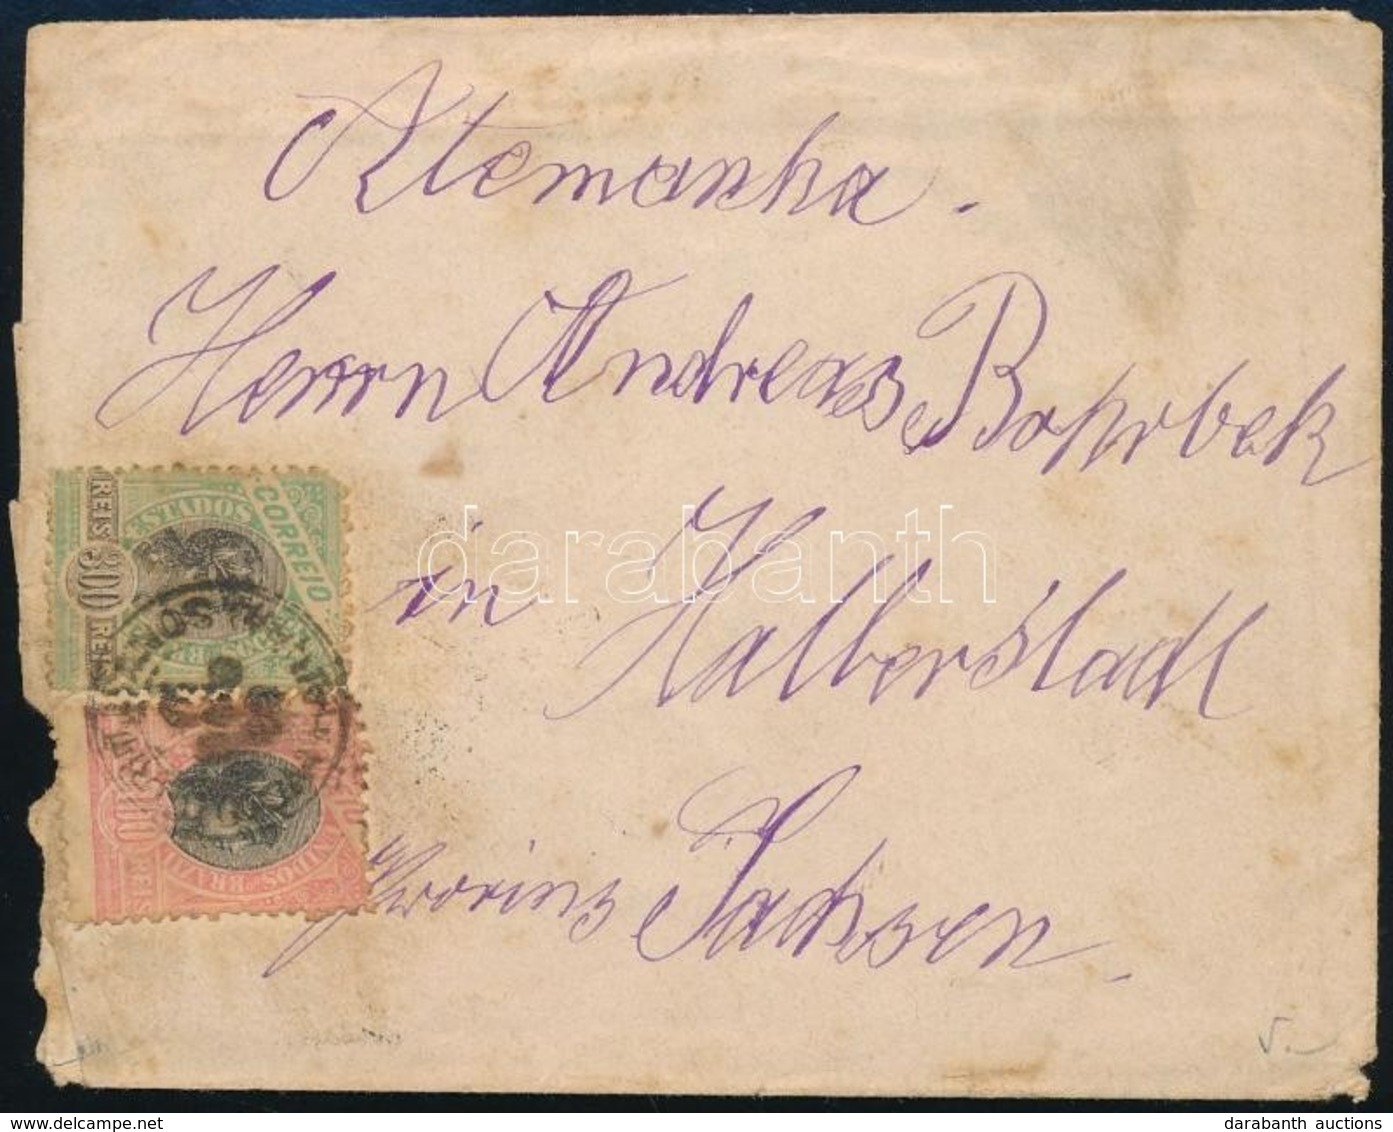 Altemanha.
Herrn Andreas Bohrbek
in Halberstadt
Provinz Sachsen.
REIS 300 REIS
ESTADOS
CORREIO
100 REIS
darabanth
delcampe.net
darabanth auctions